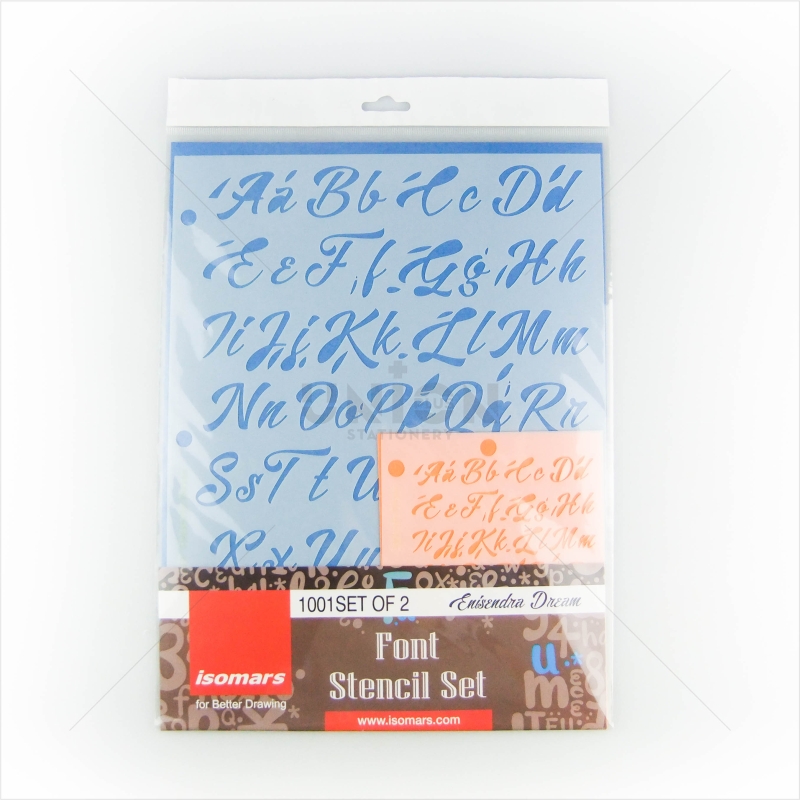 Aa Bb Cc Dd
Ee Ff Gg Hh
Ii Jj Kk Ll Mm
Nn Oo Pp Qq Rr
UNION
PLUS
STATIONERY
Ss T t U
Aa Bb Cc Dd
Ee Ff Gg Hh
Ii Jj Kk Ll Mm
Xx Yy
1001SET OF 2
Enisendra Dream
Font
Stencil Set
isomars
for Better Drawing
www.isomars.com